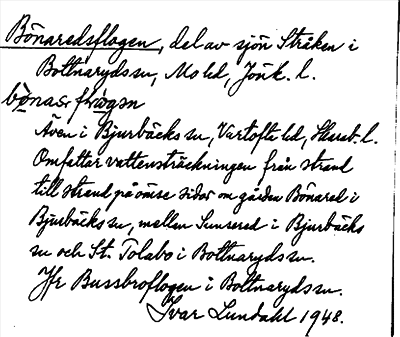 Bönaredsflogen, del av sjön Stråken i
Bottnaryds sn, Mo hd, Jönk. l.
bö̀nasr flωgən
Även i Bjurbäcks sn, Vartofta hd, Skarab. l.
Omfattar vattensträckningen från strand
till strand på ömse sidor om gården Bönared i
Bjurbäcks sn, mellan Sunnered i Bjurbäcks
sn och St. Tolabo i Bottnaryds sn.
Jfr Bussbroflogen i Bottnaryds sn.
Ivar Lundahl 1948.